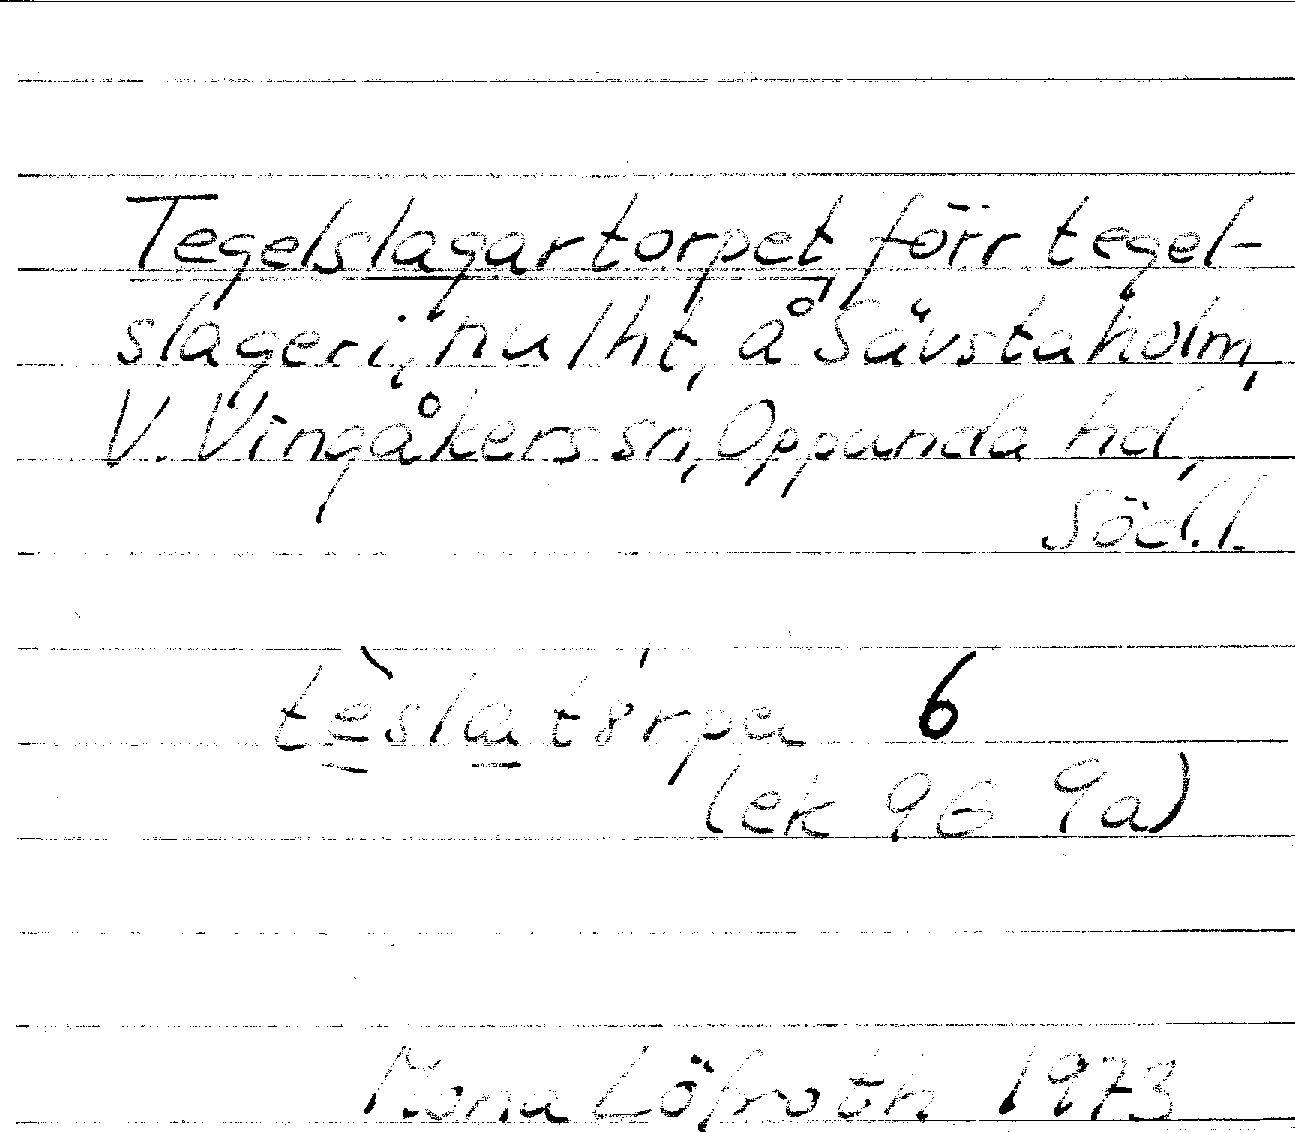 Tegelslagartorpet, förr tegel-
slageri, nu lht, å Sävstaholm,
V. Vingåkers sn, Oppunda hd,
Söd.l.
tèslatórpa 6
(ek 9G 9a)
Mona Löfroth 1973